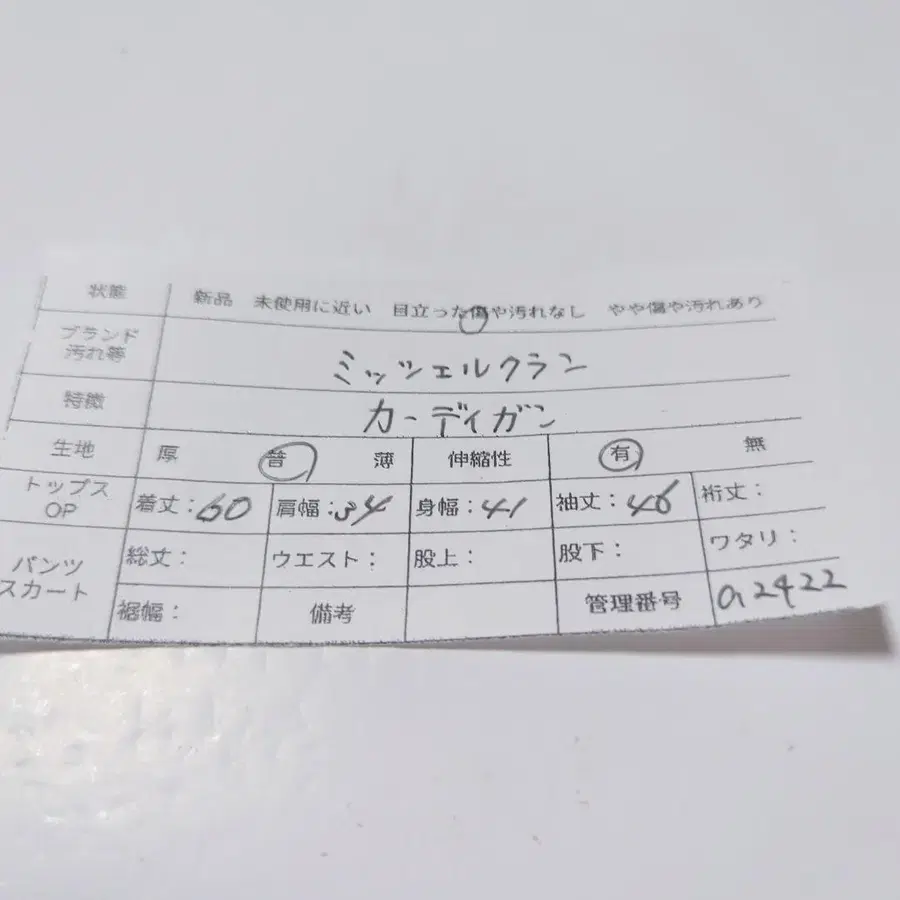 状態 新品 未使用に近い 目立った傷や汚れなし やや傷や汚れあり
ブランド
汚れ等 ミッシェルクラン
特徴 カーディガン
生地 厚 普 薄 伸縮性 有 無
トップス
OP 着丈:60 肩幅:34 身幅:41 袖丈:46 裄丈:
パンツ
スカート 総丈: ウエスト: 股上: 股下: ワタリ:
裾幅: 備考 管理番号 a2422